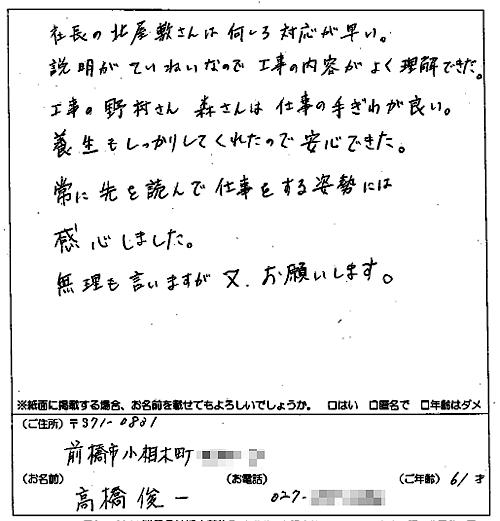 社長の北屋敷さんは何しろ対応が早い。
説明がていねいなので工事の内容がよく理解できた。
工事の野村さん 森さんは仕事の手ぎわが良い。
養生もしっかりしてくれたので安心できた。
常に先を読んで仕事をする姿勢には
感心しました。
無理も言いますが又、お願いします。
※紙面に掲載する場合、お名前を載せてもよろしいでしょうか。 □はい □匿名で □年齢はダメ
(ご住所)〒371-0831
前橋市小相木町
(お名前) (お電話) (ご年齢) 61才
高橋俊一 027-